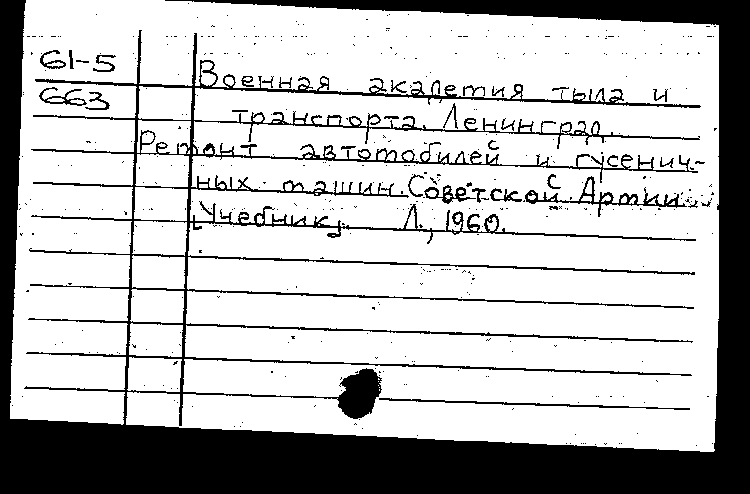 61-5
663
Военная академия тыла и
транспорта. Ленинград.
Ремонт автомобилей и гусенич-
ных машин Советской Армии.
[Учебник]. Л., 1960.